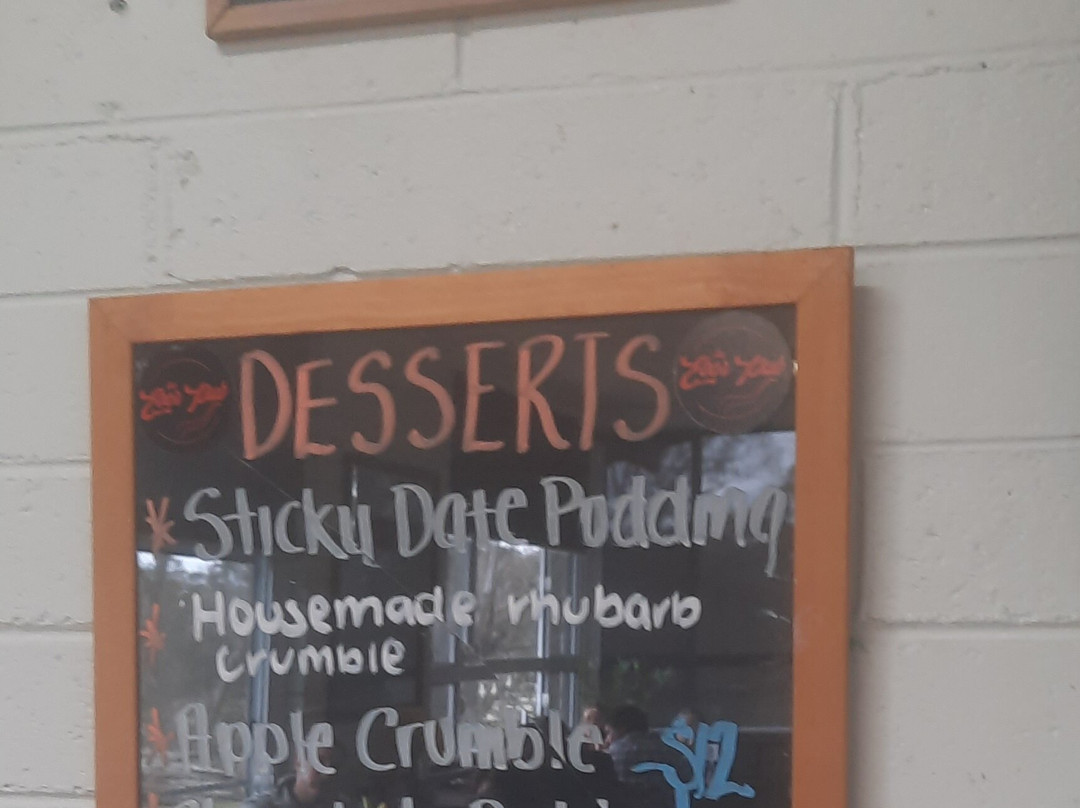 DESSERTS
* Sticky Date Pudding
* Housemade rhubarb
crumble
* Apple Crumble $12